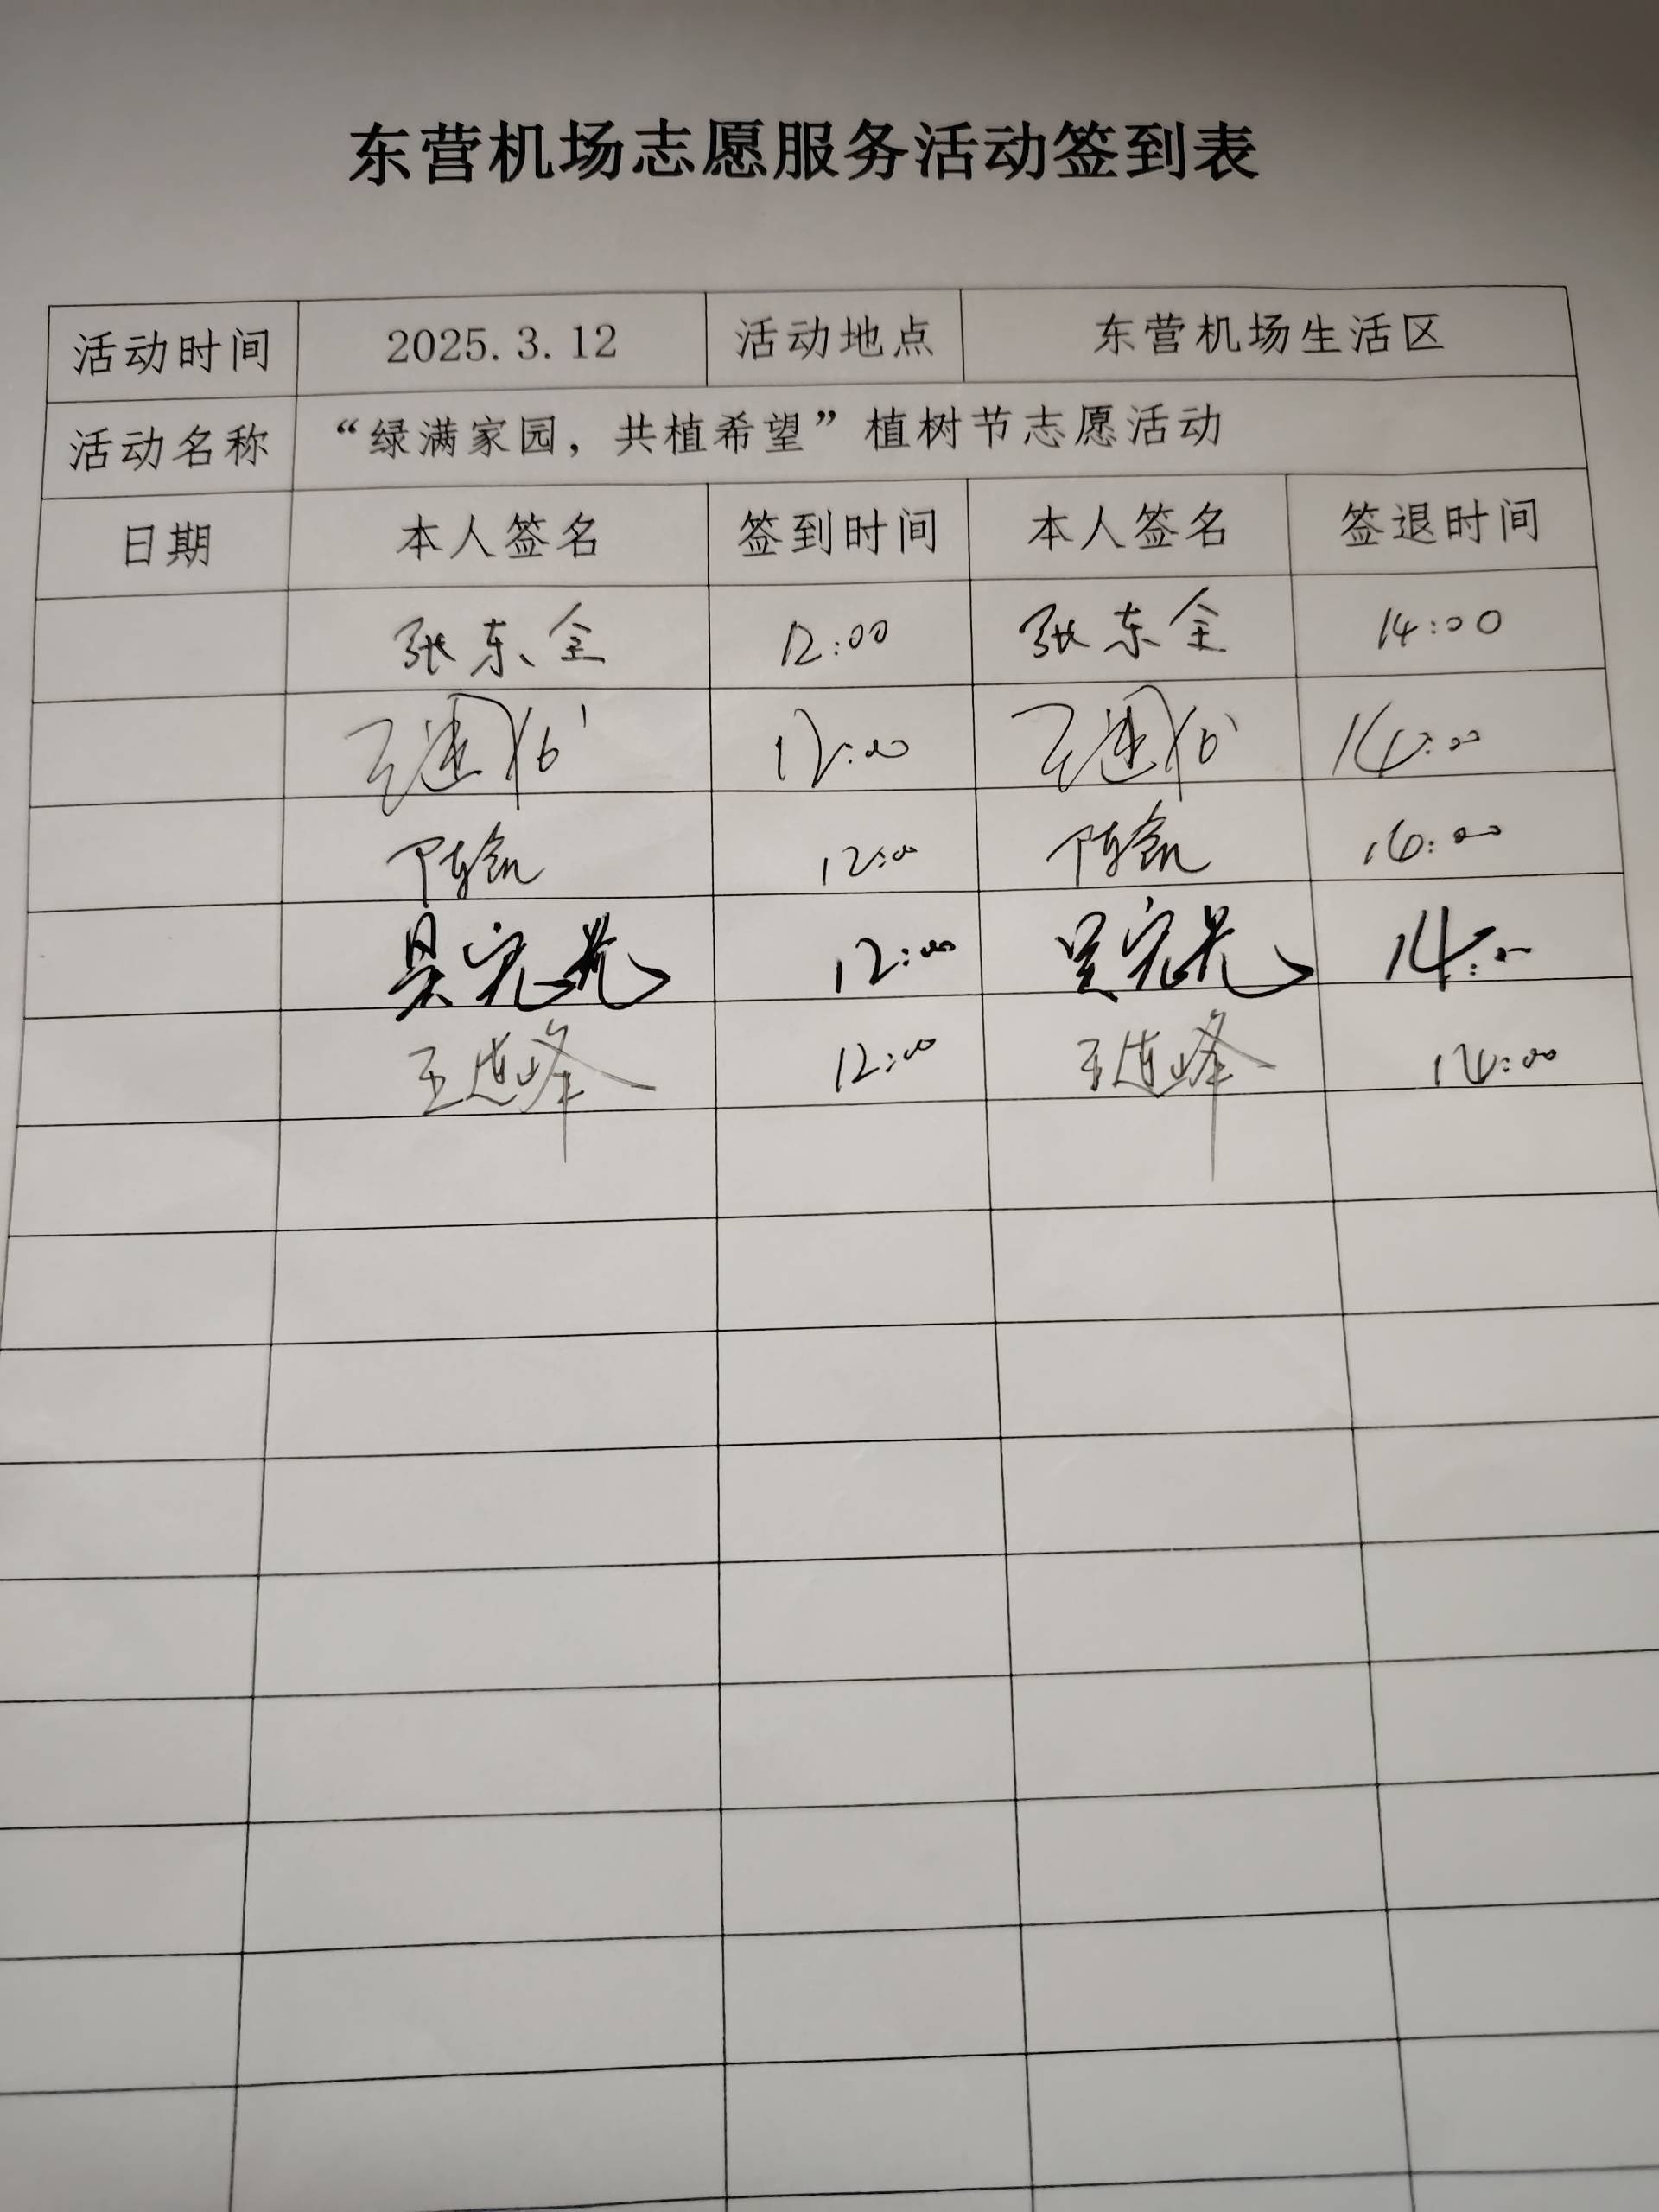 东营机场志愿服务活动签到表
活动时间 2025.3.12 活动地点 东营机场生活区
活动名称 “绿满家园，共植希望”植树节志愿活动
日期 本人签名 签到时间 本人签名 签退时间
张东全 12:00 张东全 14:00
王建 12:00 王建 14:00
陈凯 12:00 陈凯
吴宪 12:00 吴宪 14:00
王连峰 12:00 王连峰 14:00